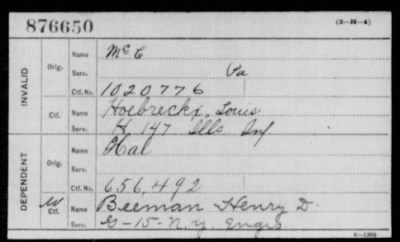 876650 (3-H-4)
INVALID
Orig. Name Mc C
Serv. Pa
Ctf. No. 1020776
Ctf. Name Hoebreckx, Louis
Serv. H 147 Ills Inf.
DEPENDENT
Orig. Name Hal
Serv.
Ctf. No. 656,492
W Ctf. Name Beeman Henry D.
Serv. G-15-N.Y. Engrs